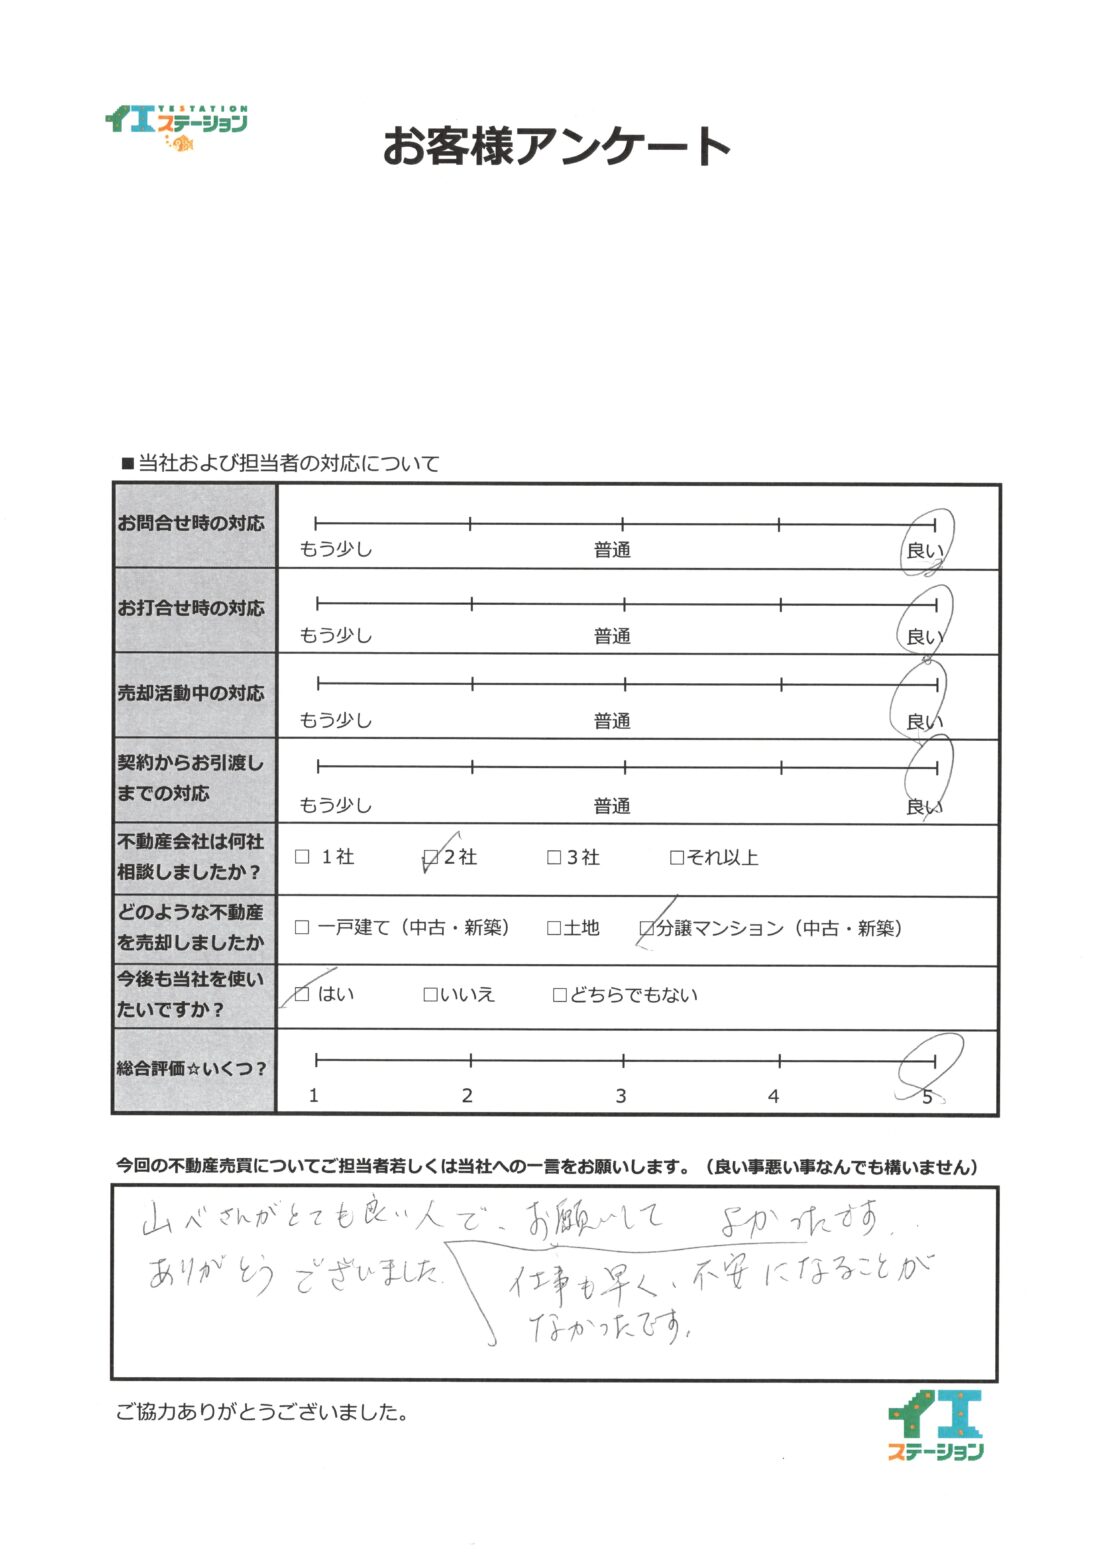 イエ YESTATION
ステーション
お客様アンケート
■当社および担当者の対応について
お問合せ時の対応
もう少し 普通 良い
お打合せ時の対応
もう少し 普通 良い
売却活動中の対応
もう少し 普通 良い
契約からお引渡し
までの対応
もう少し 普通 良い
不動産会社は何社
相談しましたか？
□ 1社 □2社 □3社 □それ以上
どのような不動産
を売却しましたか
□ 一戸建て（中古・新築） □土地 □分譲マンション（中古・新築）
今後も当社を使い
たいですか？
□ はい □いいえ □どちらでもない
総合評価☆いくつ？
1 2 3 4 5
今回の不動産売買についてご担当者若しくは当社への一言をお願いします。（良い事悪い事なんでも構いません）
山べさんがとても良い人で、お願いして よかったです。
ありがとうございました。
仕事も早く、不安になることが
なかったです。
ご協力ありがとうございました。
イエ
ステーション